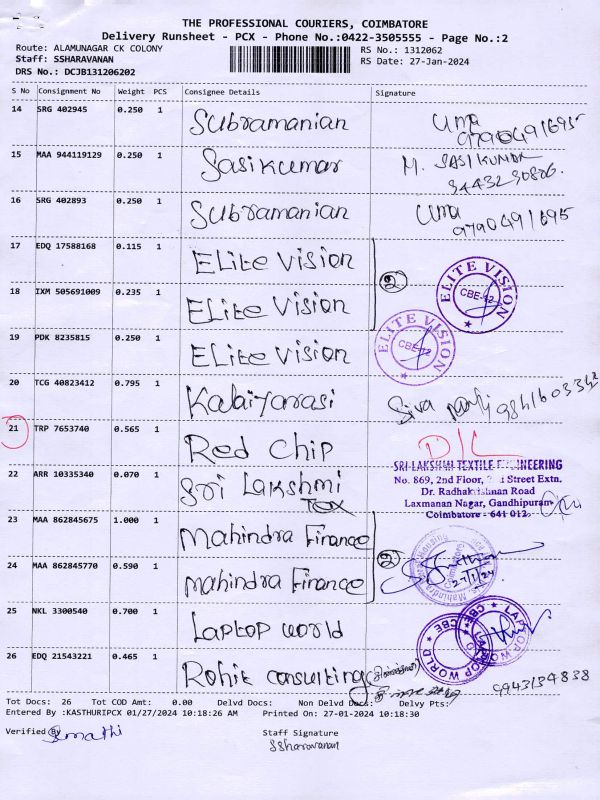 THE PROFESSIONAL COURIERS, COIMBATORE
Delivery Runsheet - PCX - Phone No.:0422-3505555 - Page No.:2
Route: ALAMUNAGAR CK COLONY
Staff: SSHARAVANAN
DRS No.: DCJB131206202
RS No.: 1312062
RS Date: 27-Jan-2024
S No Consignment No Weight PCS Consignee Details Signature
14 SRG 402945 0.250 1 Subramanian Uma 9790491695
15 MAA 944119129 0.250 1 Sasikumar M. SASIKUMAR
16 SRG 402893 0.250 1 Subramanian Uma 9790491695
17 EDQ 17588168 0.115 1 Elite Vision 2
18 IXM 505691009 0.235 1 Elite Vision ELITE VISION CBE-12
19 PDK 8235815 0.250 1 Elite Vision ELITE VISION CBE-12
20 TCG 40823412 0.795 1 Kalaiyarasi Siva
21 TRP 7653740 0.565 1 Red Chip D/L
22 ARR 10335340 0.070 1 Sri Lakshmi Tex
SRI LAKSHMI TEXTILE ENGINEERING
No. 869, 2nd Floor, 2nd Street Extn.
Dr. Radhakrishnan Road
Laxmanan Nagar, Gandhipuram
Coimbatore - 641 012.
23 MAA 862845675 1.000 1 Mahindra Finance 2
24 MAA 862845770 0.590 1 Mahindra Finance 27/1/24
25 NKL 3300540 0.700 1 Laptop world LAPTOP WORLD CBE LAPTOP WORLD CBE
26 EDQ 21543221 0.465 1 Rohit consulting 9943134838
Tot Docs: 26 Tot COD Amt: 0.00 Delvd Docs: Non Delvd Docs: Delvy Pts:
Entered By :KASTHURIPCX 01/27/2024 10:18:26 AM Printed On: 27-01-2024 10:18:30
Verified By Sumathi
Staff Signature
Ssharavanan